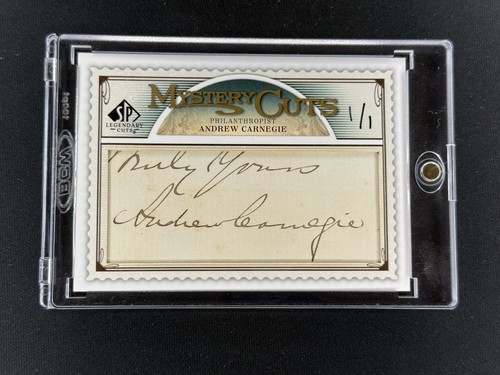 MYSTERY CUTS
PHILANTHROPIST
ANDREW CARNEGIE
1/1
SP
LEGENDARY
CUTS
Truly Yours
Andrew Carnegie
BCW